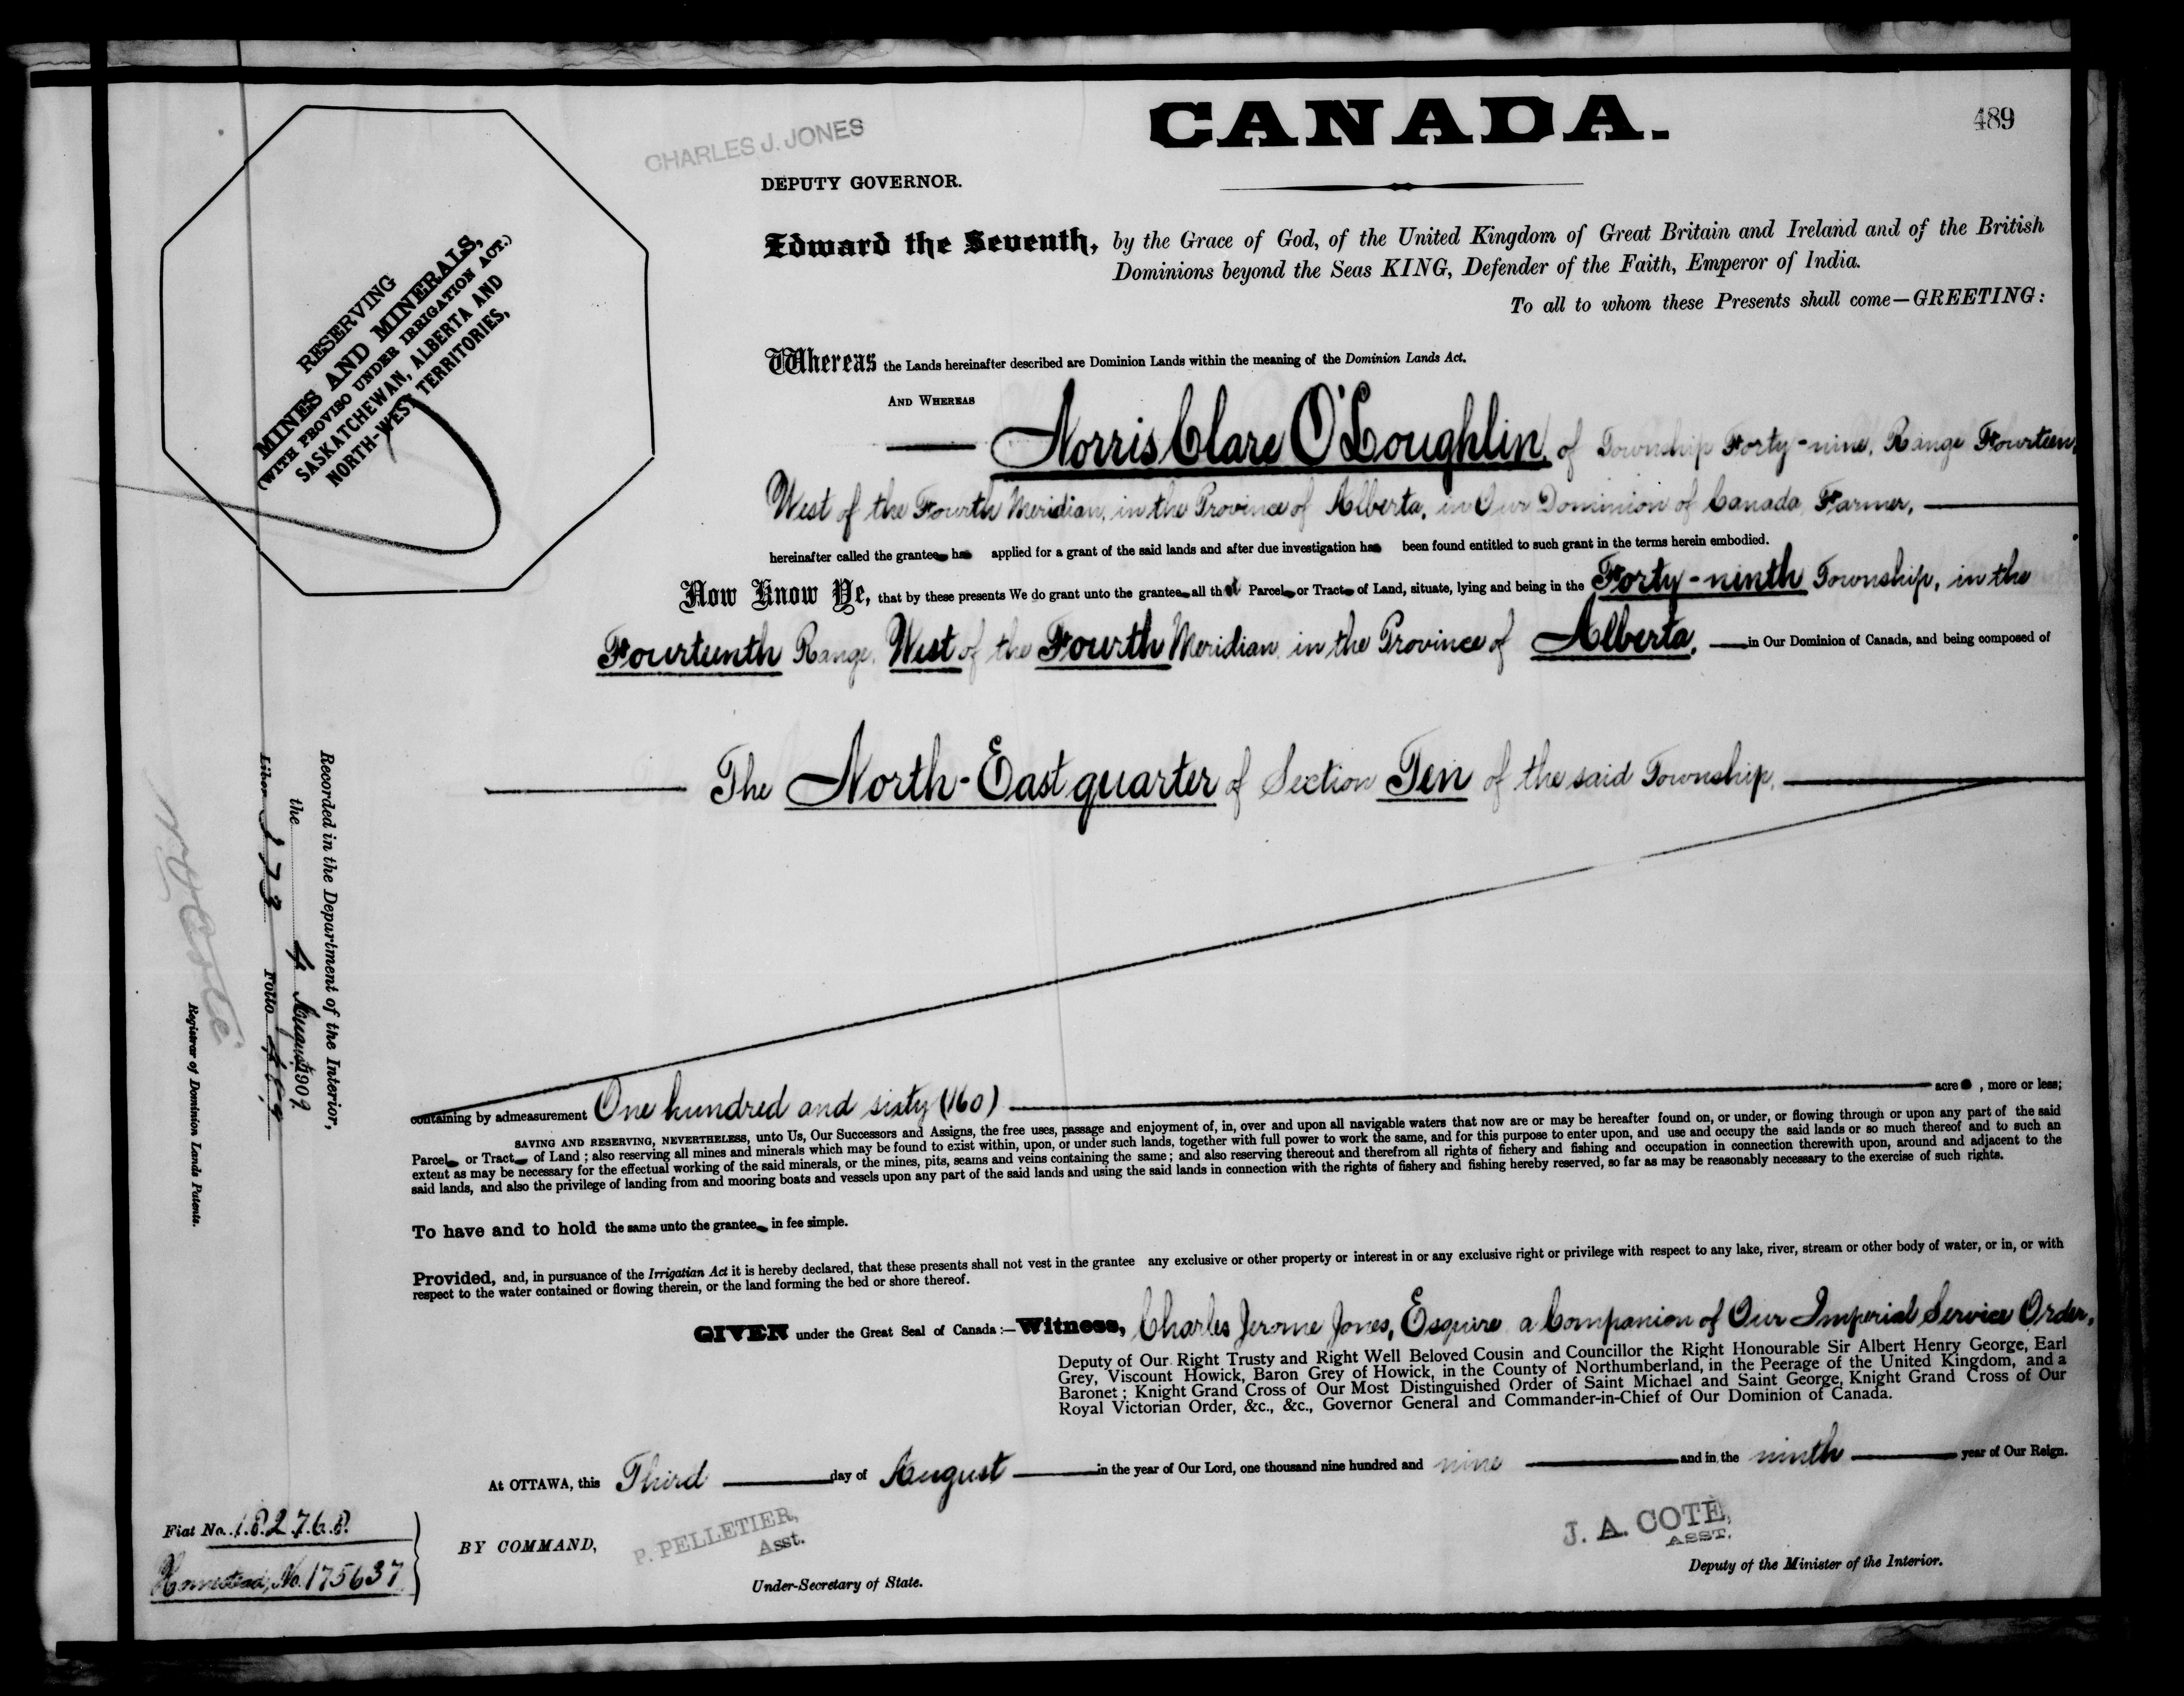 CANADA.
489
CHARLES J. JONES
DEPUTY GOVERNOR.
Edward the Seventh, by the Grace of God, of the United Kingdom of Great Britain and Ireland and of the British
Dominions beyond the Seas KING, Defender of the Faith, Emperor of India.
To all to whom these Presents shall come—GREETING:
RESERVING
MINES AND MINERALS,
(WITH PROVISO UNDER IRRIGATION ACT.)
SASKATCHEWAN, ALBERTA AND
NORTH-WEST TERRITORIES,
Whereas the Lands hereinafter described are Dominion Lands within the meaning of the Dominion Lands Act.
AND WHEREAS
Norris Clare O'Loughlin, of Township Forty-nine, Range Fourteen,
West of the Fourth Meridian, in the Province of Alberta, in Our Dominion of Canada, Farmer,
hereinafter called the grantee has applied for a grant of the said lands and after due investigation has been found entitled to such grant in the terms herein embodied.
Now Know Ye, that by these presents We do grant unto the grantee all that Parcel or Tract of Land, situate, lying and being in the Forty-ninth Township, in the
Fourteenth Range, West of the Fourth Meridian, in the Province of Alberta, in Our Dominion of Canada, and being composed of
The North-East quarter of Section Ten of the said Township,
containing by admeasurement One hundred and sixty (160) acre , more or less;
SAVING AND RESERVING, NEVERTHELESS, unto Us, Our Successors and Assigns, the free uses, passage and enjoyment of, in, over and upon all navigable waters that now are or may be hereafter found on, or under, or flowing through or upon any part of the said
Parcel or Tract of Land; also reserving all mines and minerals which may be found to exist within, upon, or under such lands, together with full power to work the same, and for this purpose to enter upon, and use and occupy the said lands or so much thereof and to such an
extent as may be necessary for the effectual working of the said minerals, or the mines, pits, seams and veins containing the same; and also reserving thereout and therefrom all rights of fishery and fishing and occupation in connection therewith upon, around and adjacent to the
said lands, and also the privilege of landing from and mooring boats and vessels upon any part of the said lands and using the said lands in connection with the rights of fishery and fishing hereby reserved, so far as may be reasonably necessary to the exercise of such rights.
To have and to hold the same unto the grantee in fee simple.
Provided, and, in pursuance of the Irrigation Act it is hereby declared, that these presents shall not vest in the grantee any exclusive or other property or interest in or any exclusive right or privilege with respect to any lake, river, stream or other body of water, or in, or with
respect to the water contained or flowing therein, or the land forming the bed or shore thereof.
GIVEN under the Great Seal of Canada:—Witness, Charles Jerome Jones, Esquire a Companion of Our Imperial Service Order,
Deputy of Our Right Trusty and Right Well Beloved Cousin and Councillor the Right Honourable Sir Albert Henry George, Earl
Grey, Viscount Howick, Baron Grey of Howick, in the County of Northumberland, in the Peerage of the United Kingdom, and a
Baronet; Knight Grand Cross of Our Most Distinguished Order of Saint Michael and Saint George, Knight Grand Cross of Our
Royal Victorian Order, &c., &c., Governor General and Commander-in-Chief of Our Dominion of Canada.
At OTTAWA, this Third day of August in the year of Our Lord, one thousand nine hundred and nine and in the ninth year of Our Reign.
BY COMMAND,
P. PELLETIER,
Asst.
Under-Secretary of State.
J. A. COTE,
ASST.
Deputy of the Minister of the Interior.
Fiat No. 182768
Homestead, No. 175637
Recorded in the Department of the Interior,
the 4 August 1909
Liber 173 Folio 489
N. O. Coté
Registrar of Dominion Lands Patents.